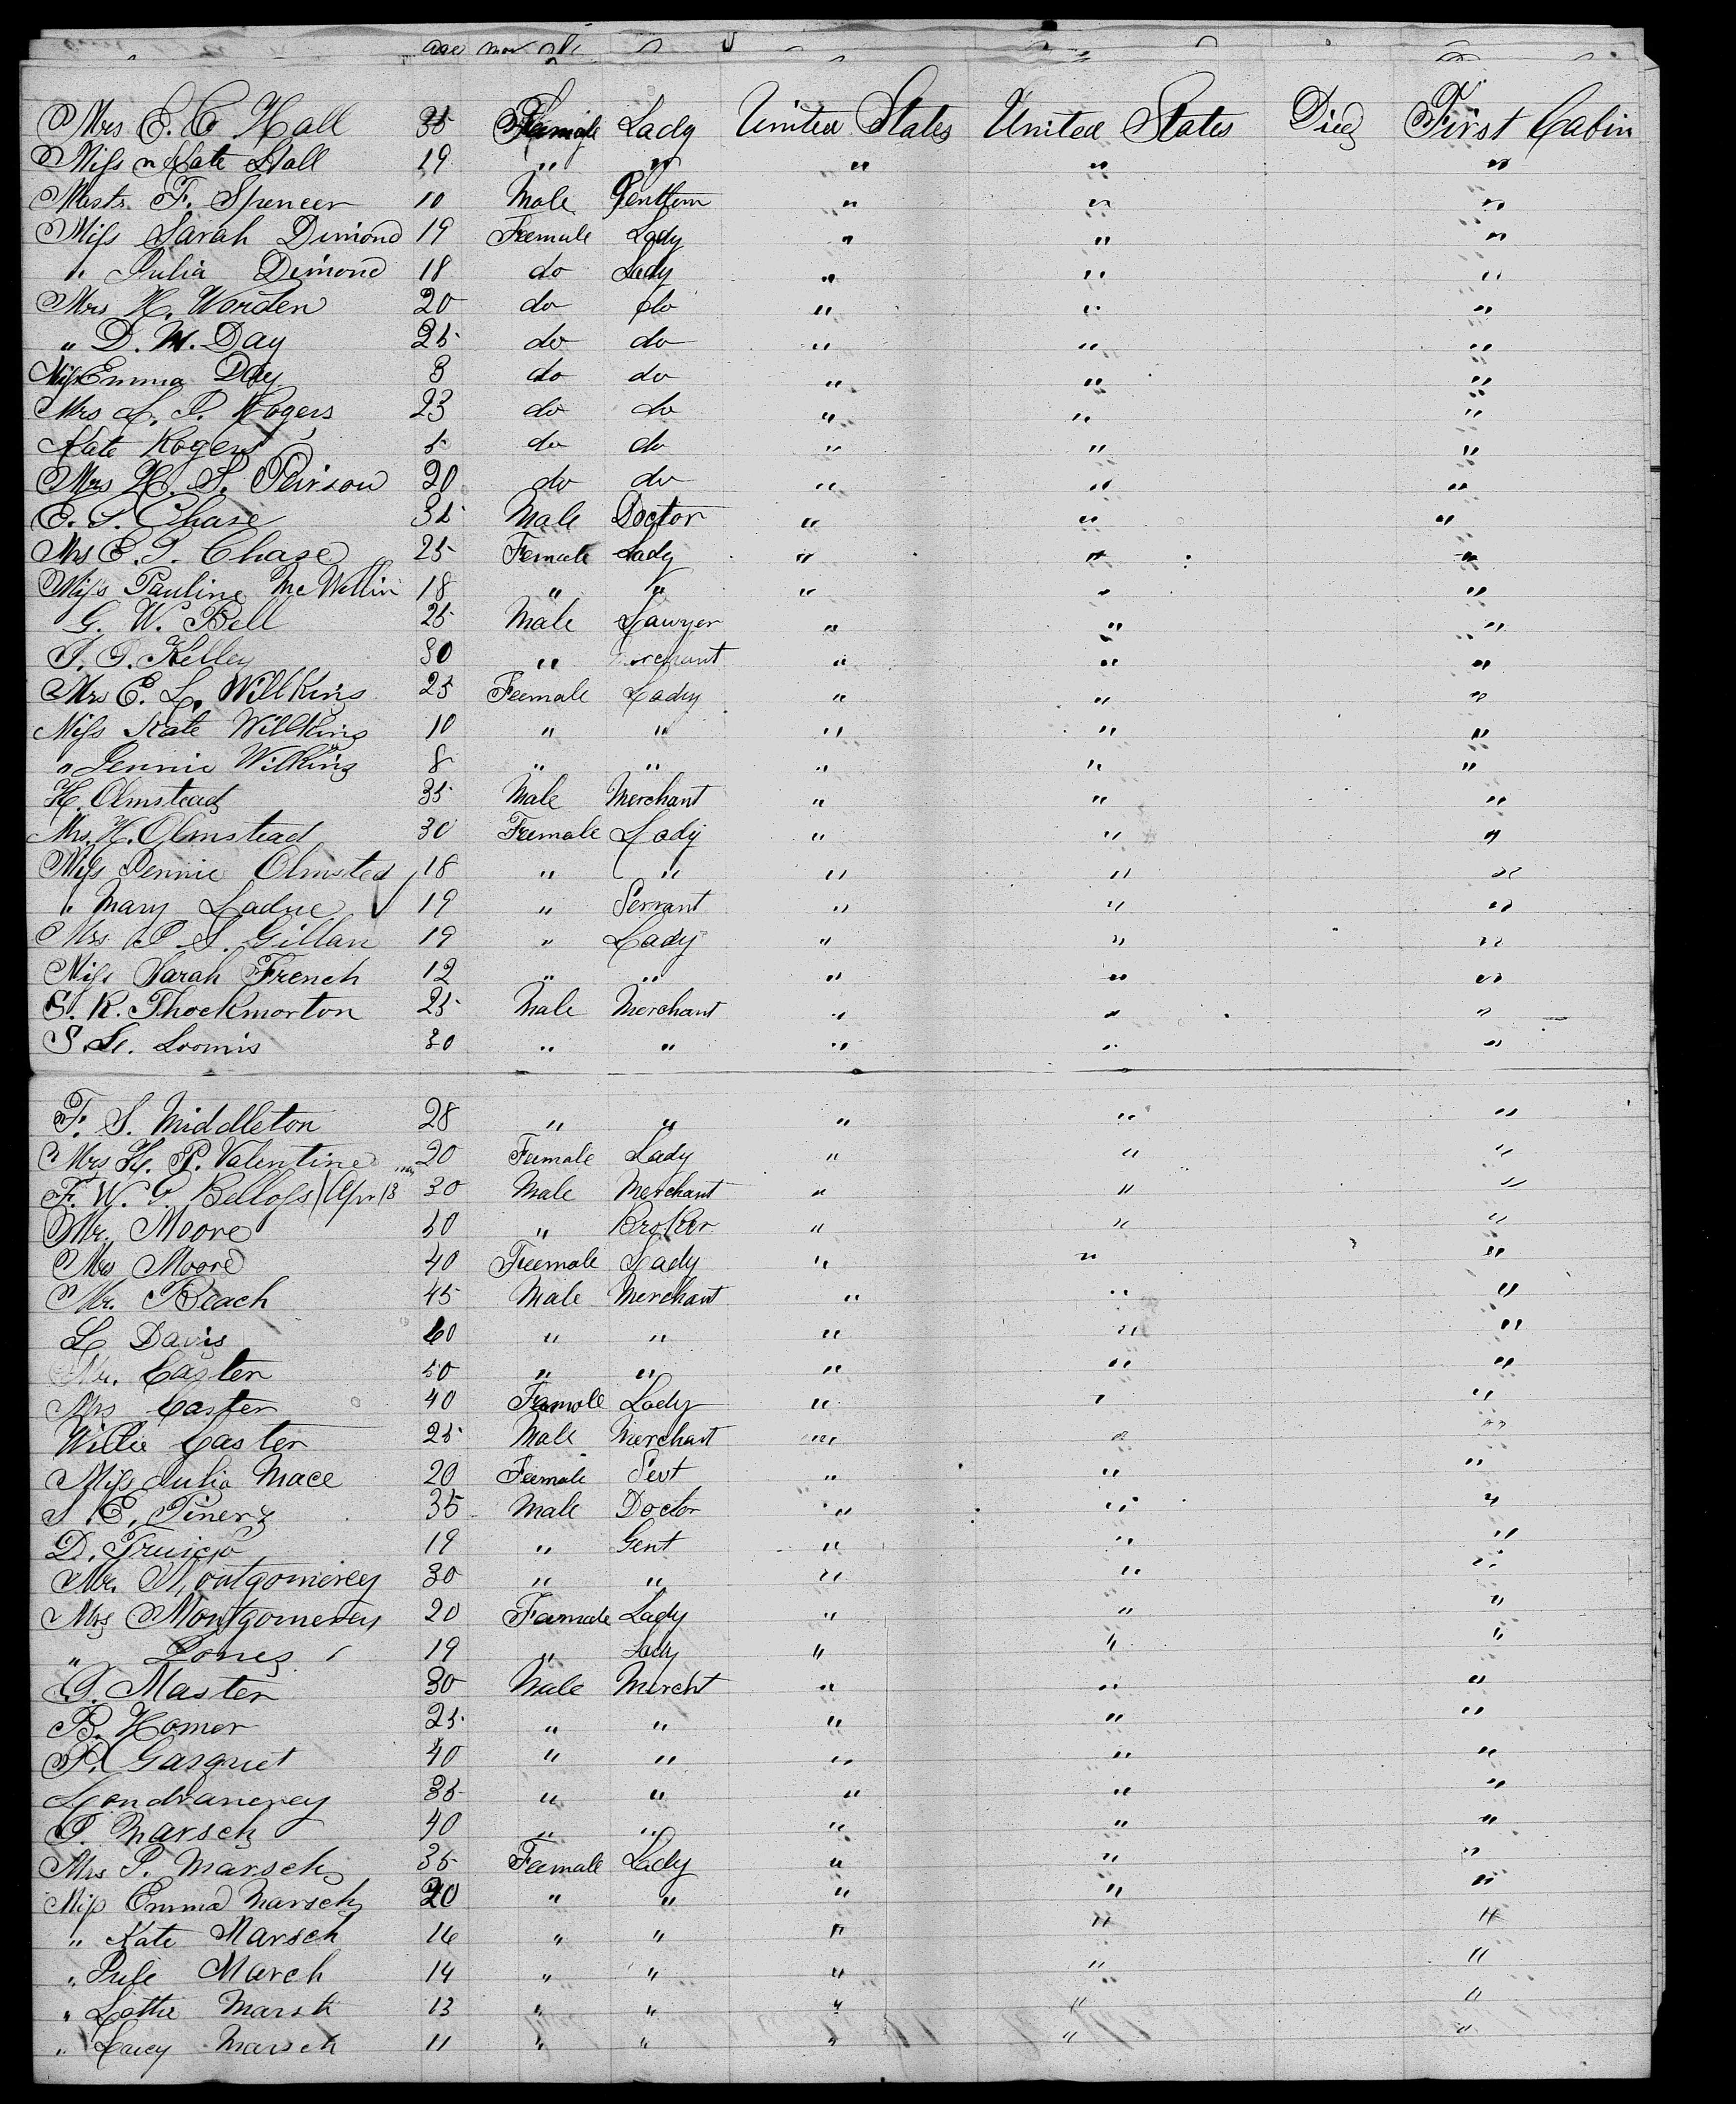 Mrs E. C Hall 35 Female Lady United States United States Died First Cabin
Miss Kate Hall 19 " " " " "
Mastr. F. Spencer 10 Male Gentlem " " "
Miss Sarah Dimond 19 Feemale Lady " " "
" Julia Dimond 18 do Lady " " "
Mrs H. Worden 20 do do " " "
" D. M. Day 25 do do " " "
Miss Emma Day 8 do do " " "
Mrs L. P. Rogers 23 do do " " "
Kate Rogers 5 do do " " "
Mrs H. S. Peirson 20 do do " " "
E. S. Chase 35 Male Doctor " " "
Mrs E. S. Chase 25 Female Lady " " "
Miss Pauline Mc Willin 18 " " " " "
G. W. Bell 25 Male Lawyer " " "
Kelley 30 " Merchant " " "
Mrs E. L. Willkins 25 Feemale Lady " " "
Miss Kate Willkins 10 " " " " "
" Jennie Wilkins 8 " " " " "
H. Olmstead 35 Male Merchant " " "
Mrs. H. Olmstead 30 Feemale Lady " " "
Miss Jennie Olmsted 18 " " " " "
" Mary Ladue 19 " Servant " " "
Mrs P. S. Gillan 19 " Lady " " "
Miss Sarah French 12 " " " " "
S. R. Thockmorton 25 Male Merchant " " "
Loomis 30 " " " " "
F. S. Middleton 28 " " " " "
Mrs Hy. P. Valentine 20 Feemale Lady " " "
F. W. G. Belloss 30 Male Merchant " " "
Mr. Moore 50 " Broker " " "
Mrs Moore 40 Feemale Lady " " "
Mr. Beach 45 Male Merchant " " "
L Davis 60 " " " " "
Mr. Caster 50 " " " " "
Mrs Caster 40 Famole Lady " " "
Willie Caster 25 Male Merchant " " "
Miss Julia Mace 20 Feemale Sevt " " "
S. E. Pinerz 35 Male Doctor " " "
D. 19 " Gent " " "
Mr. Montgomerey 30 " " " " "
Mrs Montgomerey 20 Famale Lady " " "
" Jones 19 " Lady " " "
Master 30 Male Mercht " " "
B. Homer 25 " " " " "
P. Gasquet 40 " " " " "
35 " " " " "
P. Marsch 40 " " " " "
Mrs P. Marsch 35 Feemale Lady " " "
Miss Emma Marsch 20 " " " " "
" Kate Marsch 16 " " " " "
" March 14 " " " " "
" Lottie Marsh 13 " " " " "
" Lucy Marsch 11 " " " " "